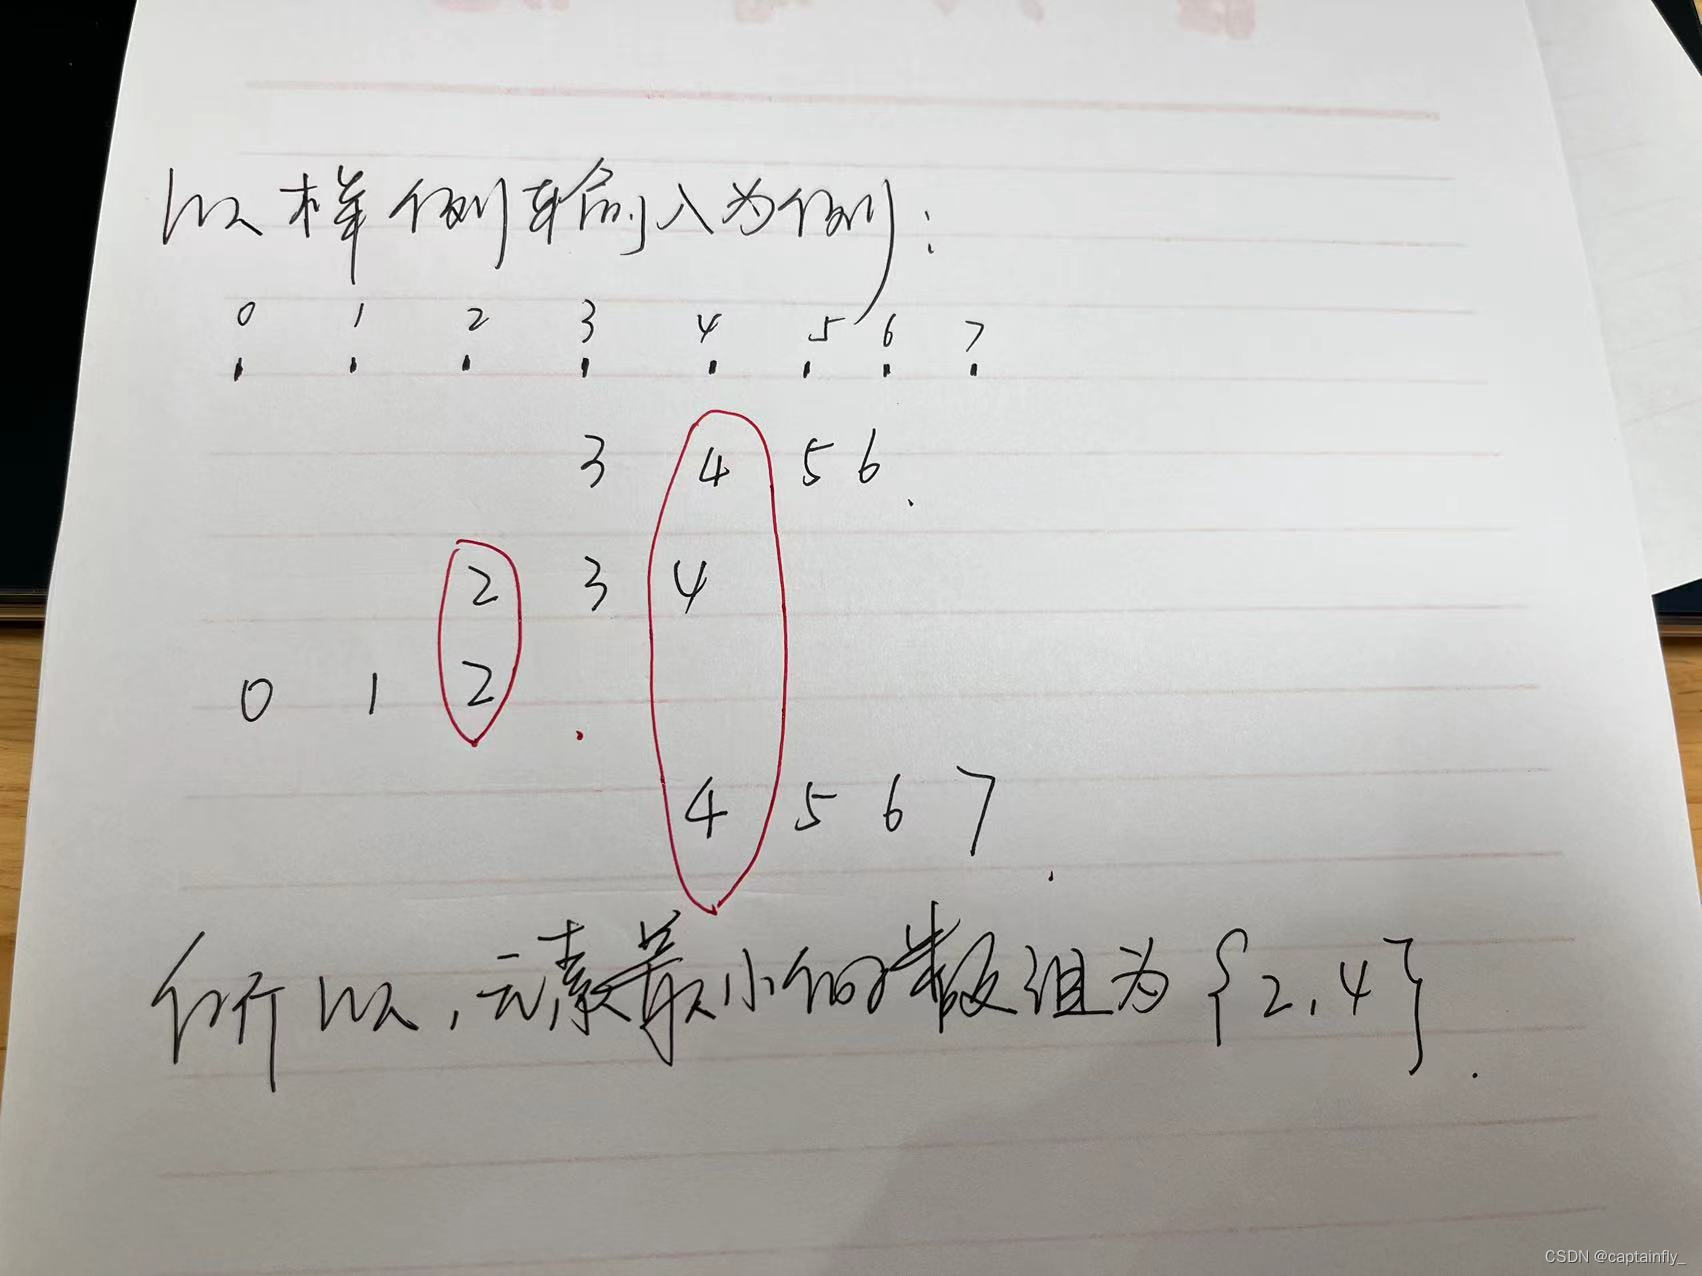 以样例输入为例:
0 1 2 3 4 5 6 7
3 4 5 6
2 3 4
0 1 2
4 5 6 7
所以,元素最小的数组为{2,4}.
CSDN @captainfly_